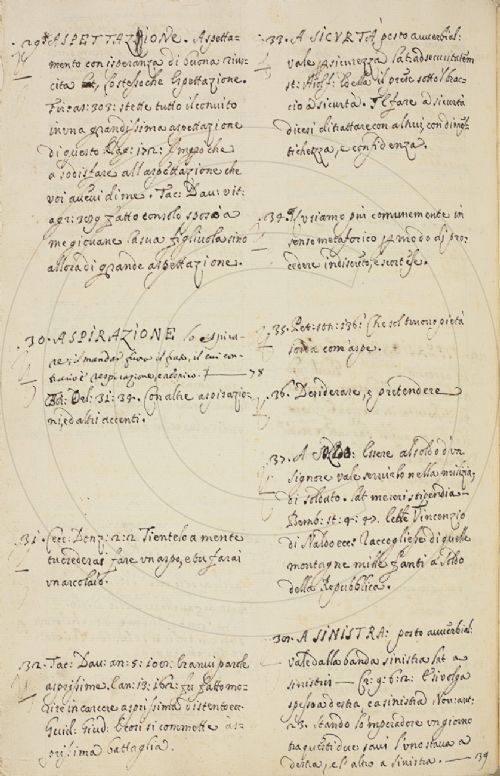 29. ASPETTAZIONE. Aspetta-
mento con isperanza di buona rius-
cita lat, lo stesso che Espettazione.
Fir: as: 303: stette tutto il convito
in una grandissima aspettazione
di questo Rag: 172:
a sodisfare all aspettazione che
voi avevi di me. Tac: Dav: vit:
agr: 389 fatto consolo sposò a
me giovane la sua figliuola sino
allora di grande aspettazione.
30. ASPIRAZIONE lo aspira-
re; il mandar fuor il fiato, il cui con-
trario è respirazione, 78
Bel: 31: 39. Con altre aspirazio-
ni, ed altri accenti.
31. Cecc: Donz: 2: 2 Tientelo a mente
tu crederai fare un aspo, e tu farai
un arcolaio.
32. Tac: Dav: an: 5: 100: Granui parole
asprissime. lan: 13: 162: fu fatto mo-
rire in carcere asprissima
Guid: Giud: Etosi si commette as-
prissima battaglia.
33. A SICURTÀ posto avverbial:
vale sicurezza lat: ad securitatem
st: Aiolf: Colla il prese sotto 'l brac-
cio a sicurtà. Il fare a sicurtà
dicesi di trattare con altrui, con dimes-
tichezza, e confidenza.
34. Usiamo più comunemente in
senso metaforico p modo di pro-
cedere indiscreto, e scortese.
35. Pet: son: 136: Che sol trovo pietà
sorda com aspe.
36. Desiderare, e pretendere
37. A SOLDO: Essere al soldo d'un
Signore vale servirlo nella milizia,
di soldato. lat mereri stipendia
Bemb: st: 4: 47. Vincenzio
di Naldo ecc: Raccogliesse di quelle
montagne mille fanti a soldo
della Repubblica.
38. A SINISTRA: posto avverbial:
vale dalla banda sinistra lat a
sinistris — Cr: 9: 6: 2: E rivolga
spesso a destra, e a sinistra Nov: ant:
2: 3. Stando lo imperadore un giorno
tra questi due savi l'uno stava a
destra, e l' altro a sinistra. — 139